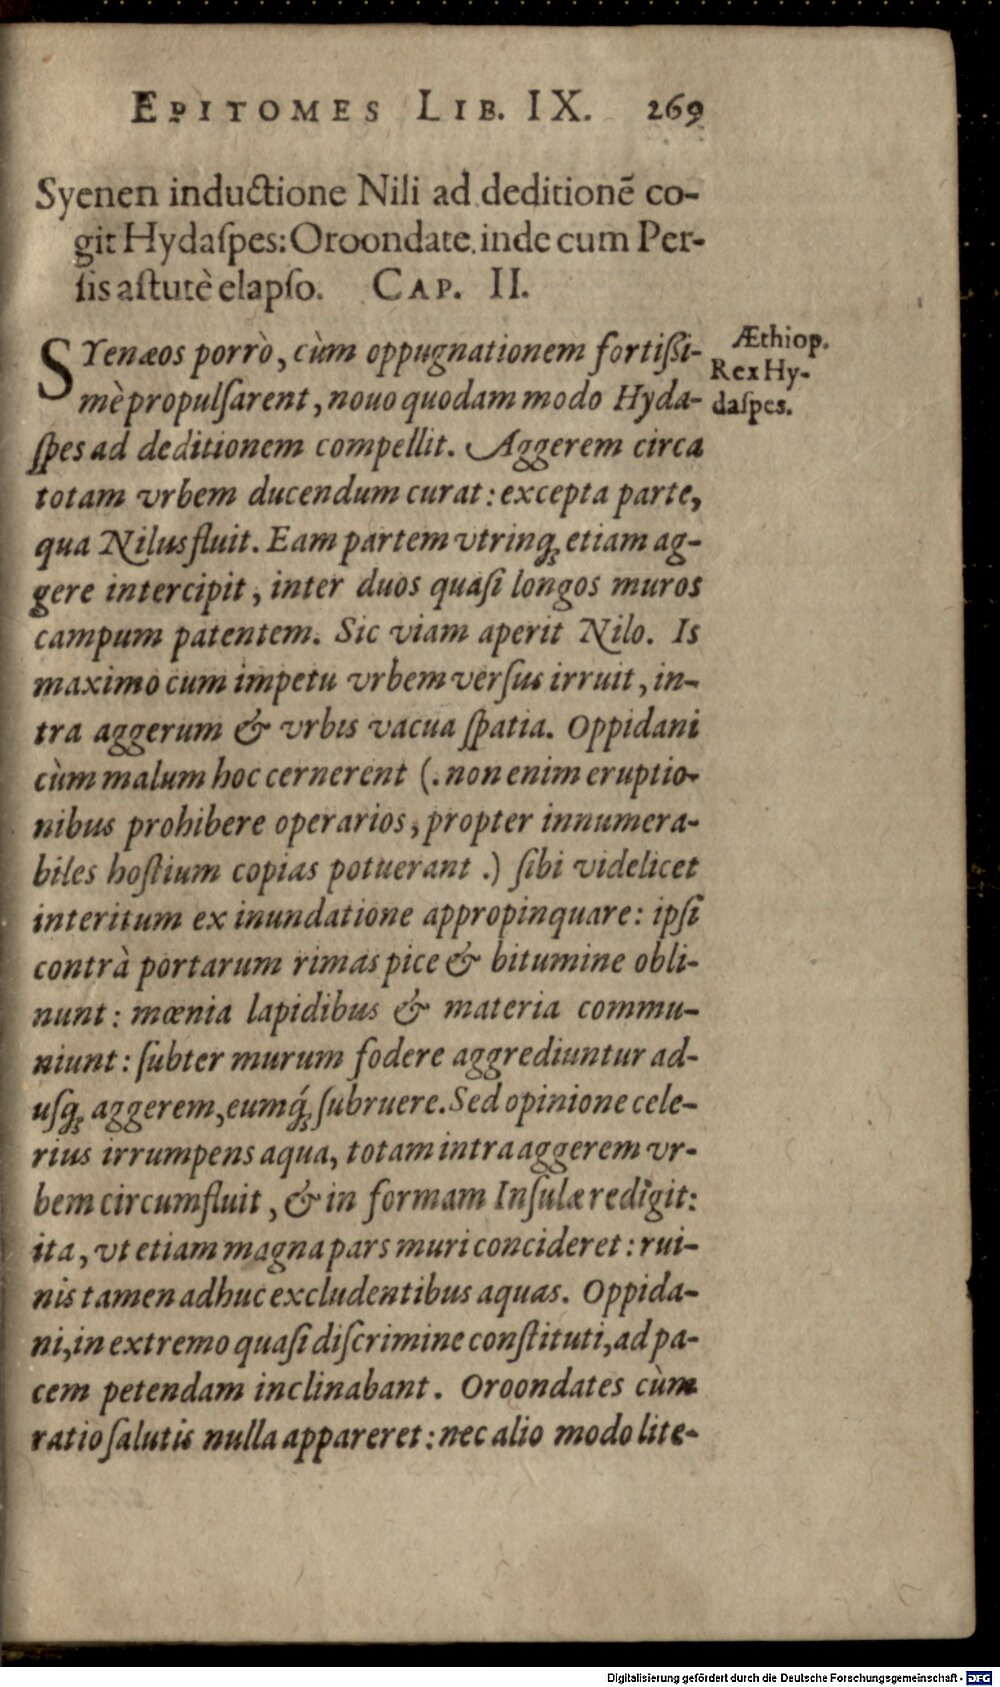 EPITOMES LIB. IX. 269
Syenen inductione Nili ad deditionē co-
git Hydaſpes: Oroondate inde cum Per-
ſis aſtutè elapſo. CAP. II.
SYenæos porrò, cùm oppugnationem fortiſsi-
mè propulſarent, nouo quodam modo Hyda-
ſpes ad deditionem compellit. Aggerem circa
totam vrbem ducendum curat: excepta parte,
qua Nilus fluit. Eam partem vtrinq; etiam ag-
gere intercipit, inter duos quaſi longos muros
campum patentem. Sic viam aperit Nilo. Is
maximo cum impetu vrbem verſus irruit, in-
tra aggerum & vrbis vacua ſpatia. Oppidani
cùm malum hoc cernerent (. non enim eruptio-
nibus prohibere operarios, propter innumera-
biles hoſtium copias potuerant .) ſibi videlicet
interitum ex inundatione appropinquare: ipſi
contrà portarum rimas pice & bitumine obli-
nunt: mœnia lapidibus & materia commu-
niunt: ſubter murum fodere aggrediuntur ad-
uſq; aggerem, eumq́; ſubruere. Sed opinione cele-
rius irrumpens aqua, totam intra aggerem vr-
bem circumfluit, & in formam Inſulæ redigit:
ita, vt etiam magna pars muri concideret: rui-
nis tamen adhuc excludentibus aquas. Oppida-
ni, in extremo quaſi diſcrimine conſtituti, ad pa-
cem petendam inclinabant. Oroondates cùm
ratio ſalutis nulla appareret: nec alio modo lite-
Æthiop.
Rex Hy-
daſpes.
Digitalisierung gefördert durch die Deutsche Forschungsgemeinschaft - DFG